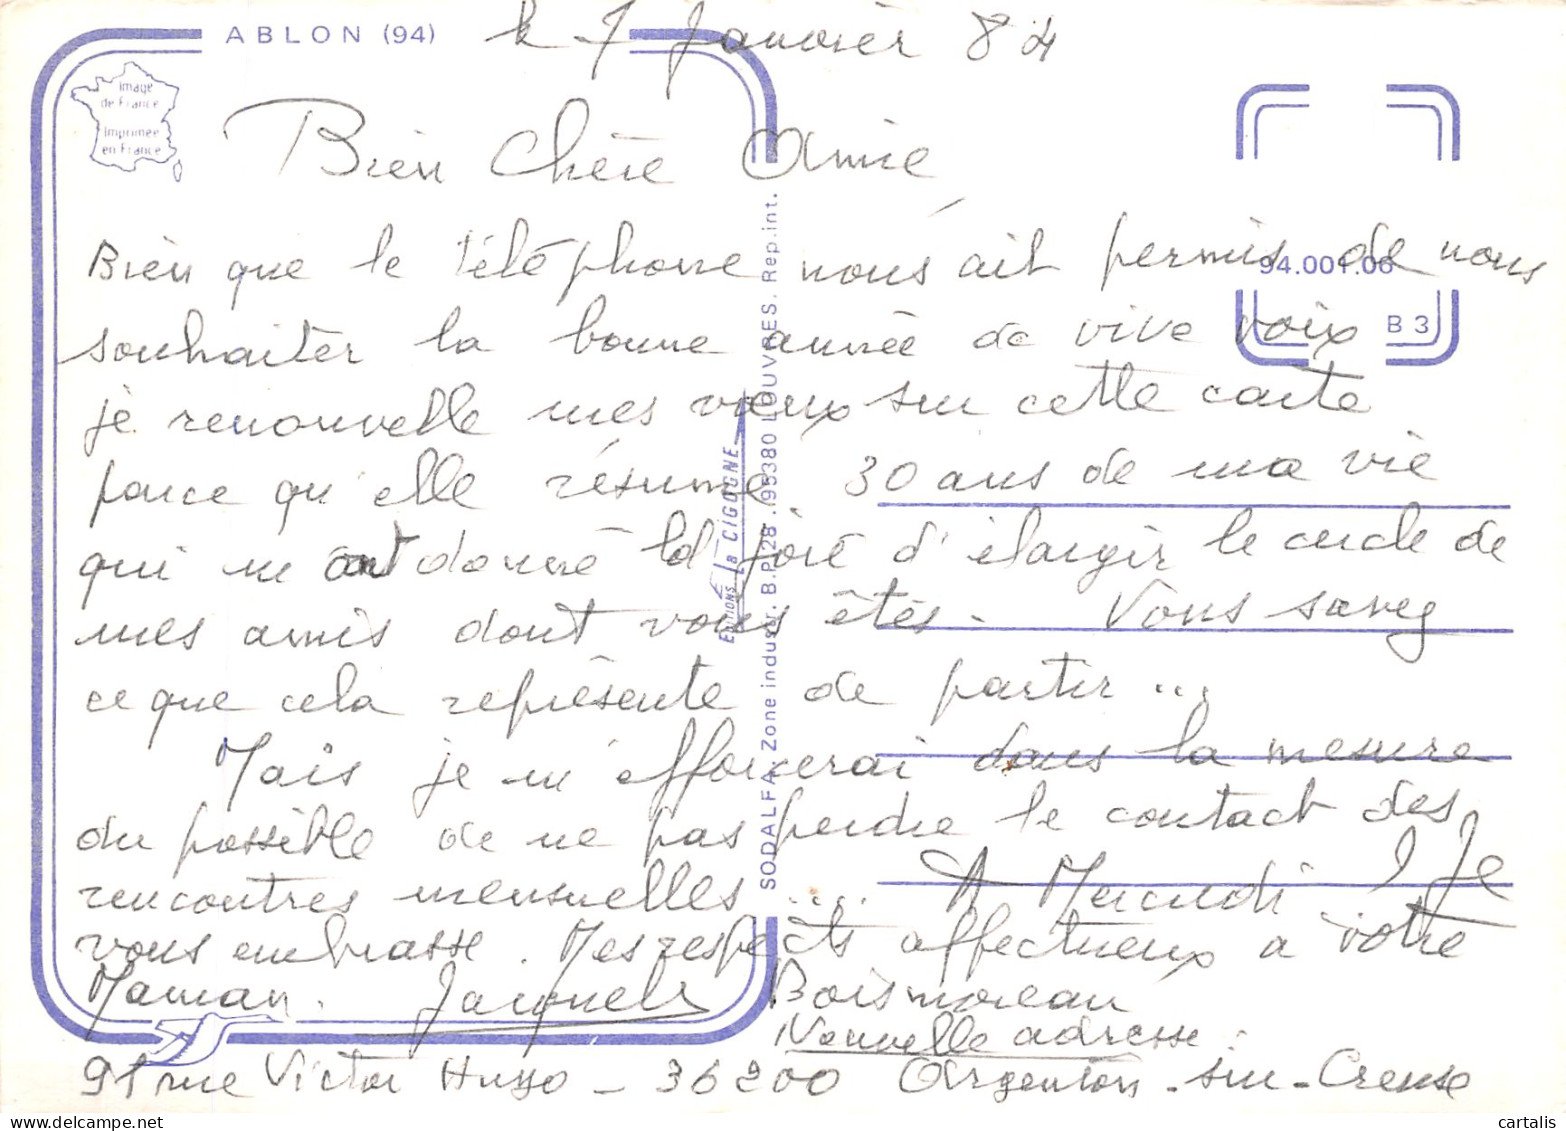 ABLON (94)
le 7 Janvier 84
image
de France
Imprimée
en France
Bien Chère Amie,
Bien que le téléphone nous ait permis de nous
94.001.06
souhaiter la bonne année de vive voix
B 3
je renouvelle mes vœux sur cette carte
parce qu'elle résume 30 ans de ma vie
qui m'ont donné la joie d'élargir le cercle de
mes amis dont vous êtes. Vous savez
ce que cela représente de partir...
Mais je m'efforcerai dans la mesure
du possible de ne pas perdre le contact des
rencontres mensuelles..... A Mercredi ! Je
vous embrasse. Mes respects affectueux à votre
Maman. Boismoreau
Nouvelle adresse :
91 rue Victor Hugo - 36200 Argenton-sur-Creuse
EDITIONS La CIGOGNE
SODALFA Zone industr. B.P. 28. (95380 LOUVRES. Rep.int.
cartalis